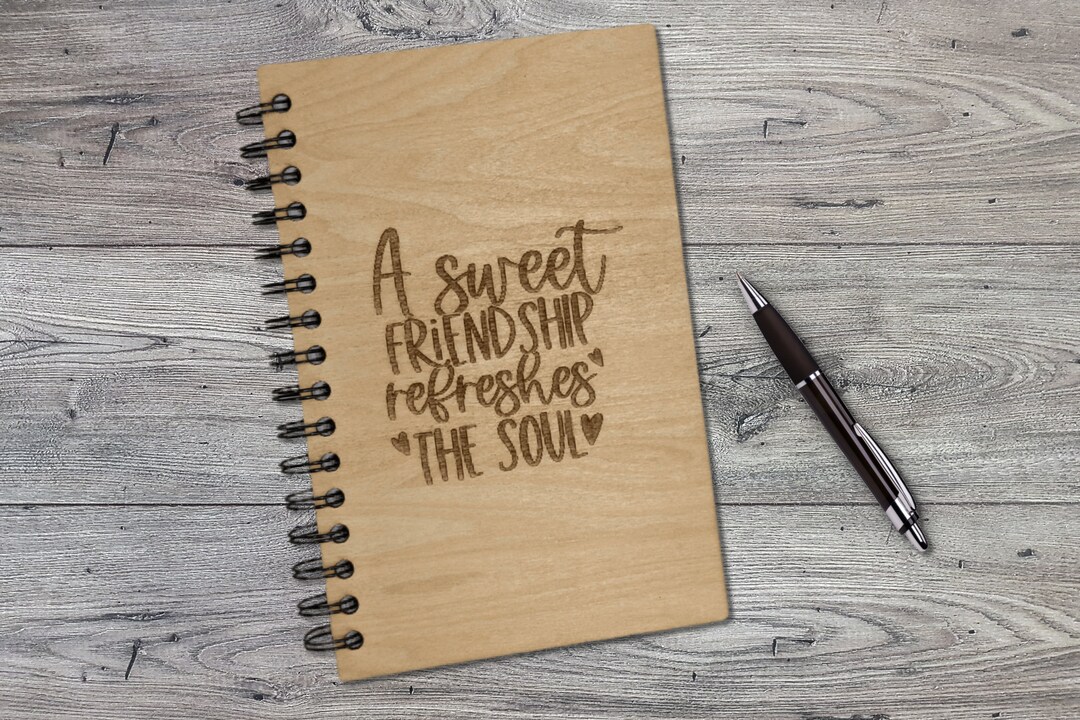 A sweet
FRiENDSHIP
refreshes
THE SOUL